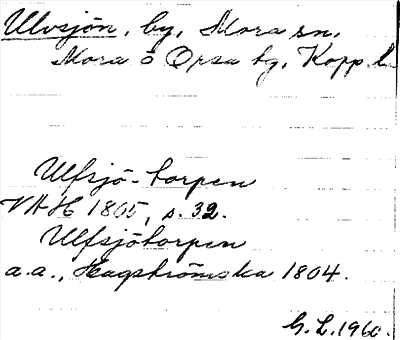 Ulvsjön, by, Mora sn,
Mora o Orsa tg, Kopp. l.
Ulfsjö-torpen
VAH 1805, s. 32.
Ulfsjötorpen
a.a., Hagströmska 1804.
G.L. 1960.